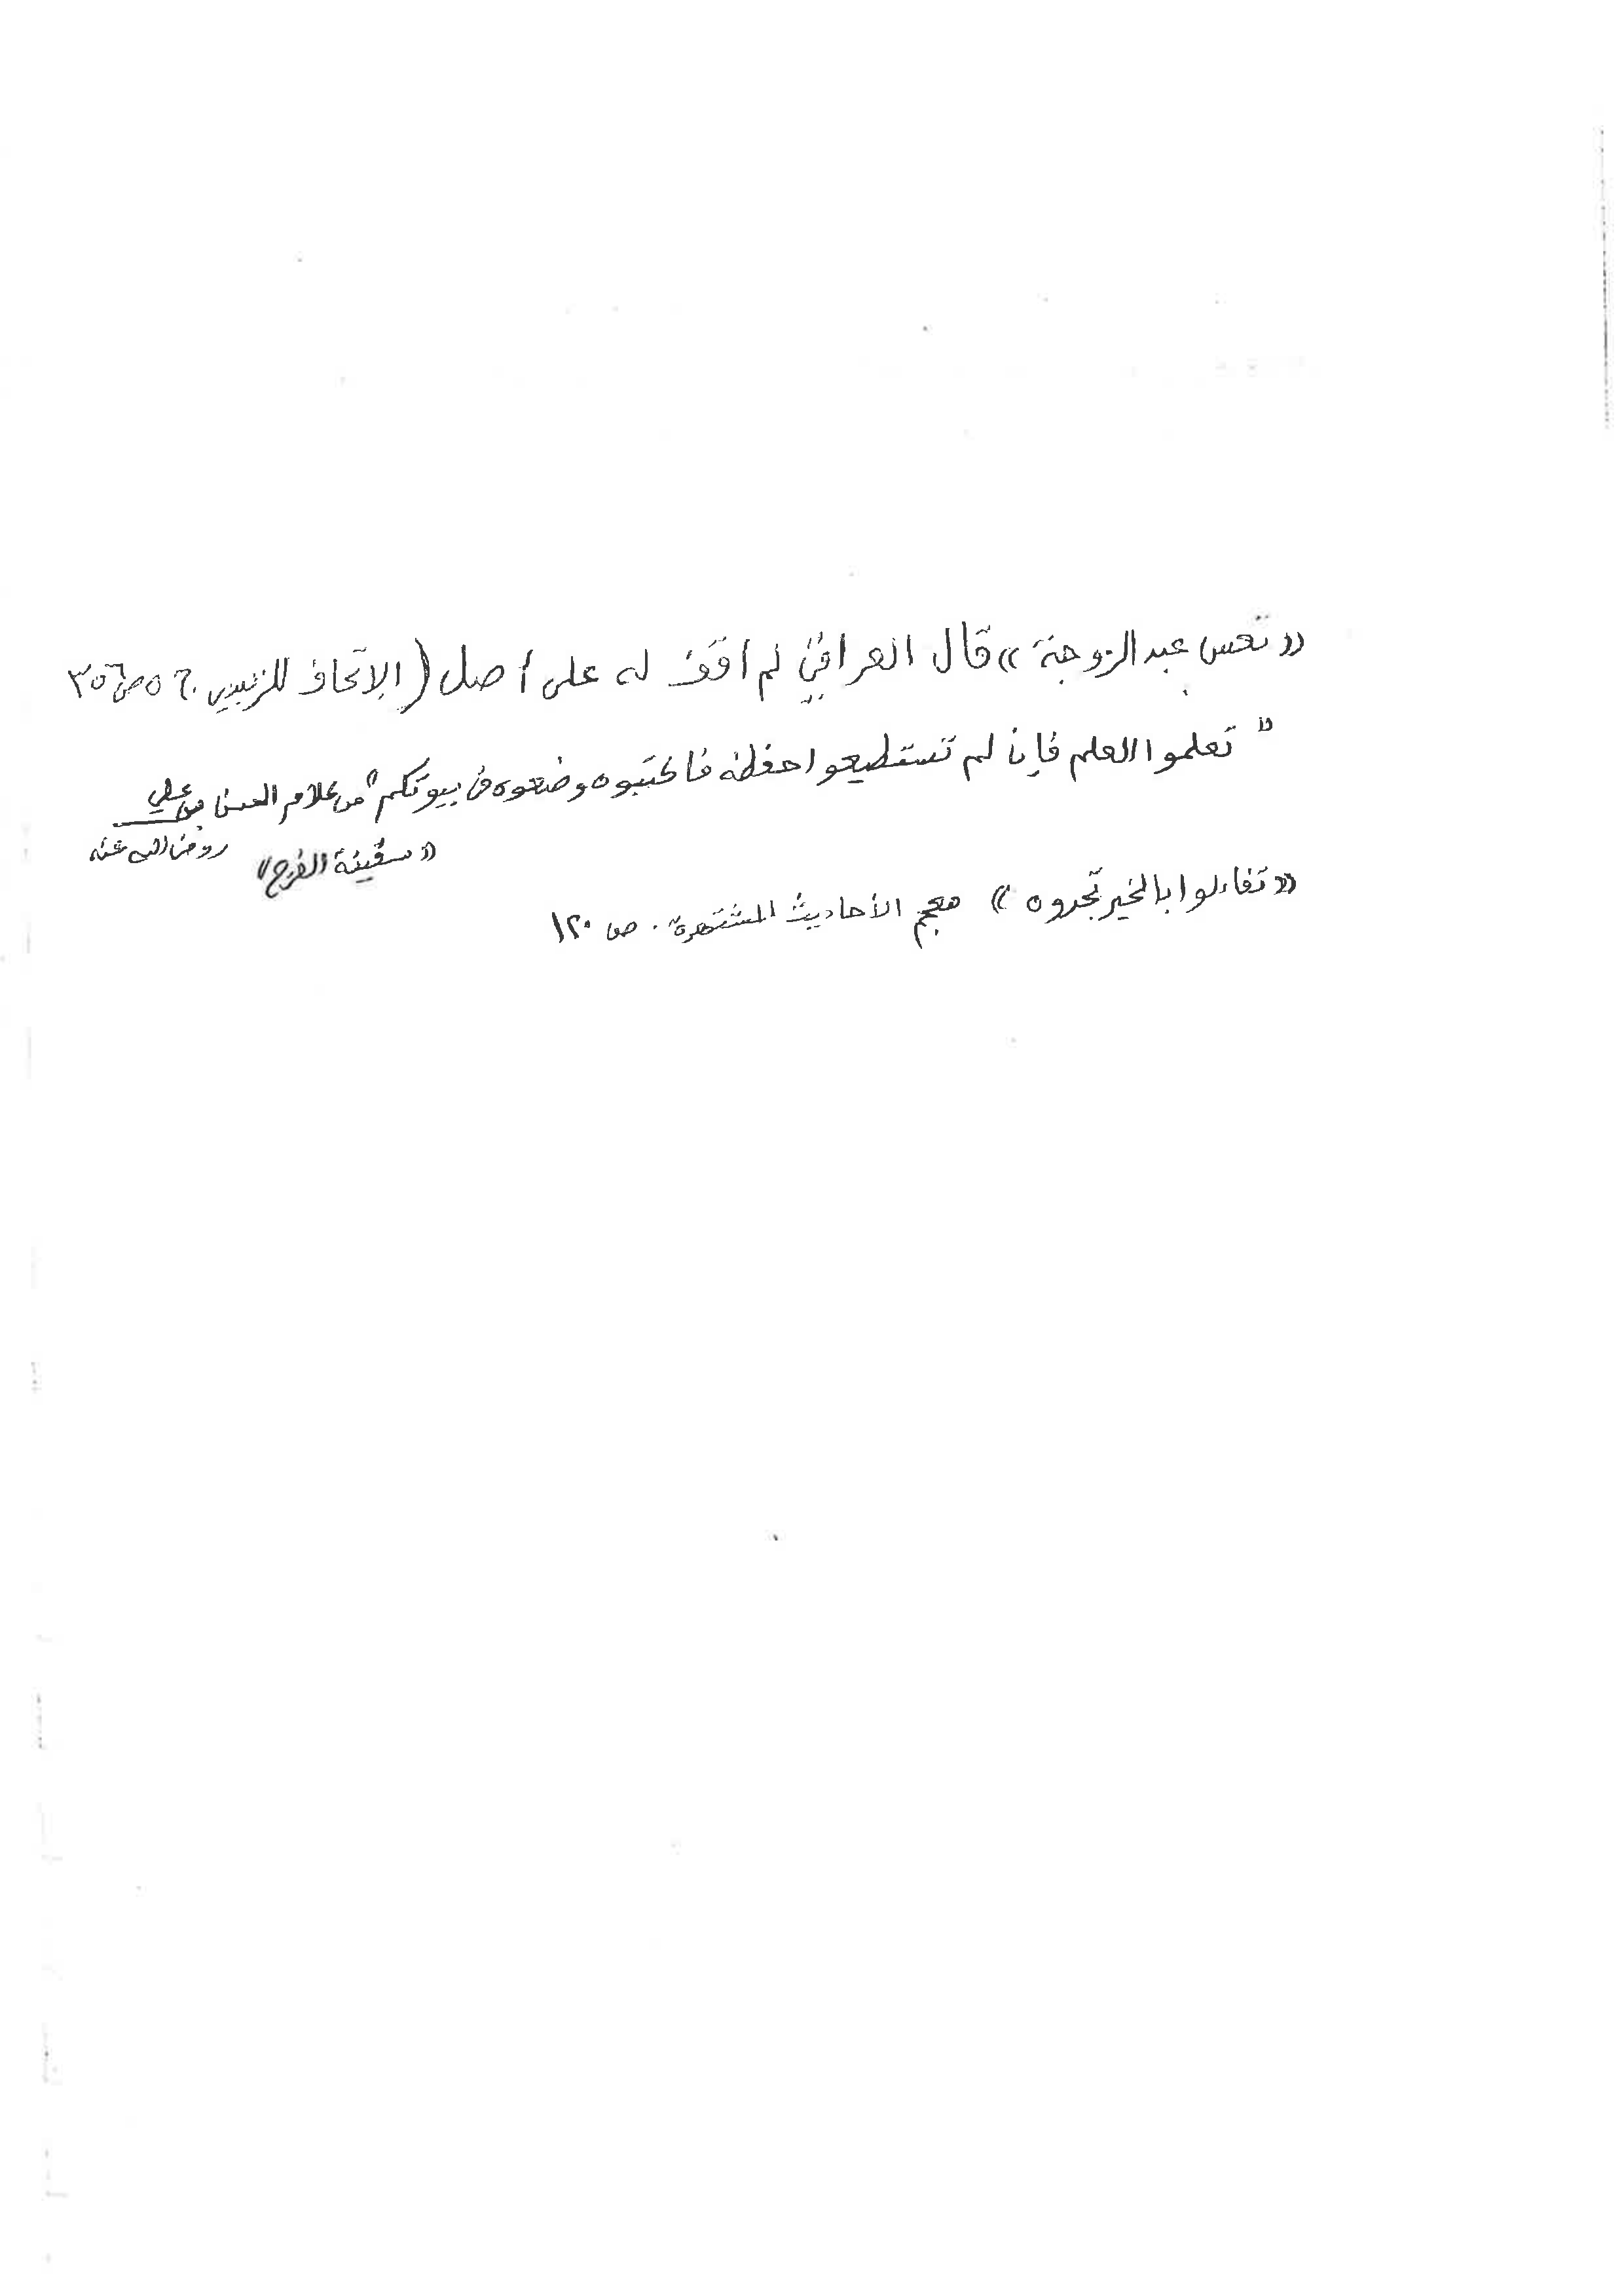 «تعس عبد الزوجة» قال العراقي لم أقف له على أصل (الإتحاف للزبيدي ج ٥ ص ٣٥٦
"تعلموا العلم فإن لم تستطيعوا حفظه فاكتبوه وضعوه في بيوتكم" من كلام الحسن بن علي
رضي الله عنه
«سفينة الفرج»
«تفاءلوا بالخير تجدوه» معجم الأحاديث المشتهرة. ص ١٢٠